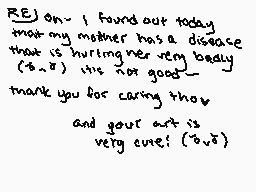 RE) oh- I found out today
that my mother has a disease
that is hurting her very badly
(ŏ~ŏ) it's not good~
thank you for caring tho♥
and your art is
very cute! (ŏvŏ)